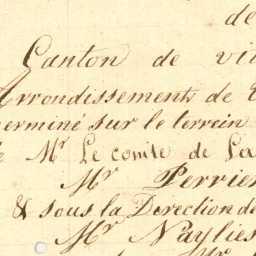 de
Canton de vi
Arrondissements de
erminé sur le terrein
Mr Le comte de La
Mr Perrier
& sous la Direction de
Mr Naylies